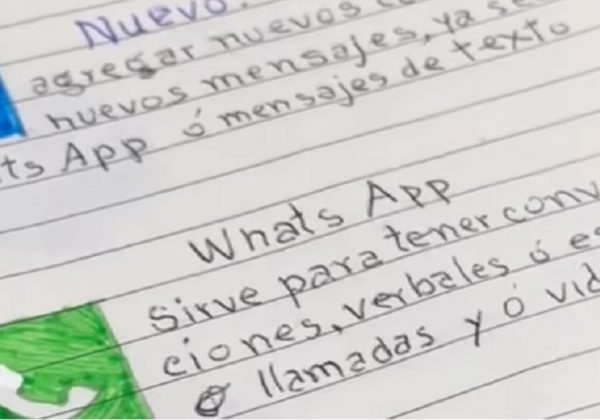 Nuevo.
agregar nuevos
nuevos mensajes, ya se
ts App ó mensajes de texto
Whats App
Sirve para tener conv
ciones, verbales ó es
llamadas y ó vid